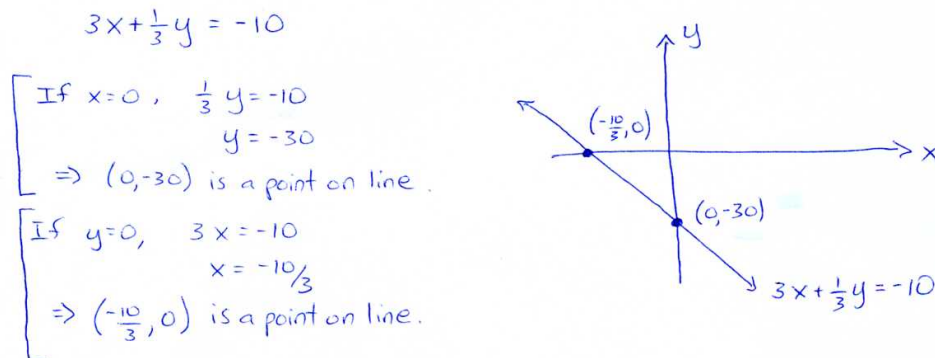 3x + 1/3 y = -10
If x=0, 1/3 y = -10
y = -30
=> (0,-30) is a point on line.
If y=0, 3x = -10
x = -10/3
=> (-10/3, 0) is a point on line.
y
(-10/3, 0)
x
(0,-30)
3x + 1/3 y = -10